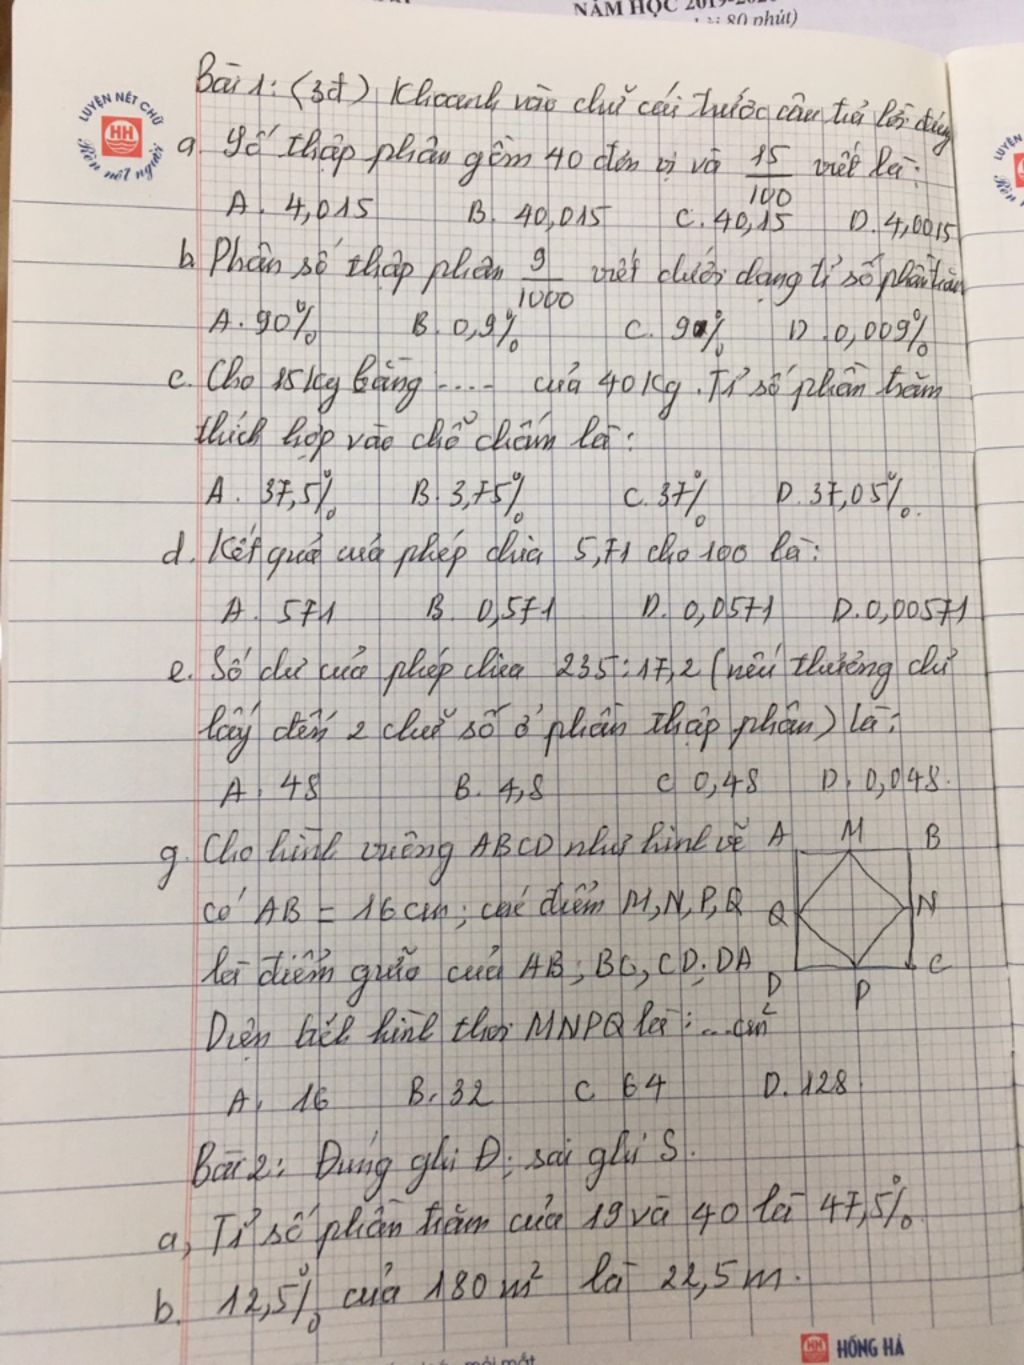 NĂM HỌC 2019-20
80 phút)
LUYỆN NÉT CHỮ
HH
Rèn nết người
Bài 1: (3đ) Khoanh vào chữ cái trước câu trả lời đúng
a. Số thập phân gồm 40 đơn vị và 15/100 viết là:
A. 4,015 B. 40,015 C. 40,15 D. 4,0015
b. Phân số thập phân 9/1000 viết dưới dạng tỉ số phần trăm
A. 90% B. 0,9% C. 9% D. 0,009%
c. Cho 15kg bằng .... của 40kg. Tỉ số phần trăm
thích hợp vào chỗ chấm là:
A. 37,5% B. 3,75% C. 37% D. 37,05%.
d. Kết quả của phép chia 5,71 cho 100 là:
A. 571 B. 0,571 D. 0,0571 D. 0,00571
e. Số dư của phép chia 235:17,2 (nếu thương chỉ
lấy đến 2 chữ số ở phần thập phân) là:
A. 48 B. 4,8 C 0,48 D. 0,048.
g. Cho hình vuông ABCD như hình vẽ
có AB = 16 cm; các điểm M,N,P,Q
là điểm giữa của AB; BC, CD; DA
A M B
Q N
D P C
Diện tích hình thoi MNPQ là: ...cm²
A. 16 B. 32 C 64 D. 128
Bài 2: Đúng ghi Đ; sai ghi S.
a, Tỉ số phần trăm của 19 và 40 là 47,5%
b. 12,5% của 180 m² là 22,5m.
HH HỒNG HÀ